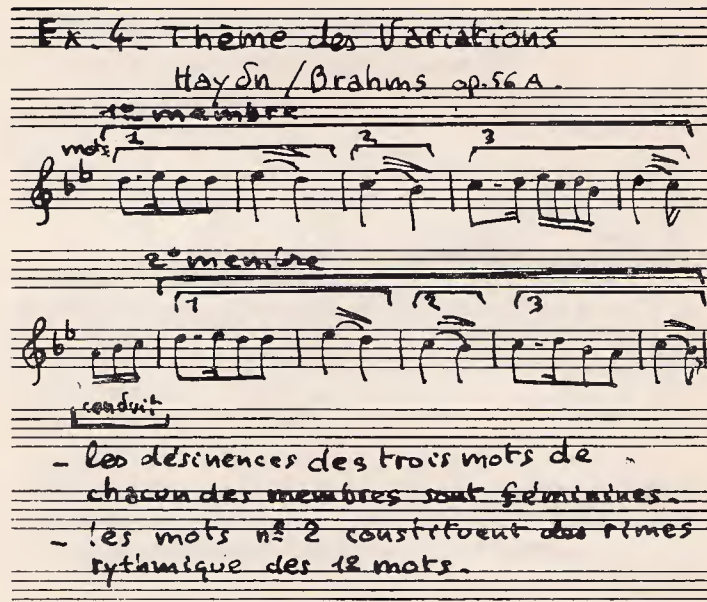 Ex. 4 - Thème des Variations
Haydn / Brahms op. 56 A.
1er membre
mots: 1 2 3
2e membre
1 2 3
conduit
- les désinences des trois mots de
chacun des membres sont féminines.
- les mots nº 2 constituent des rimes
rythmique des 12 mots.